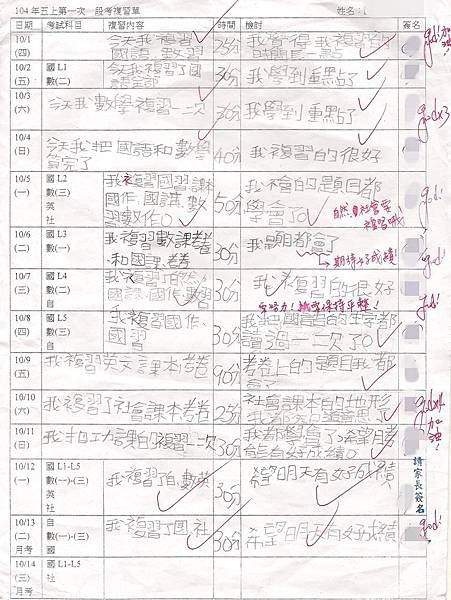 104 年五上第一次 段考複習單 姓名:
日期 考試科目 複習內容 時間 檢討 簽名
10/1 (四) 今天我複習國語、數學 25分 我覺得我複習的
good! 加油!
10/2 (五) 國 L1 數(二) 今天我複習了國語 30分 我學到重點了
10/3 (六) 今天我數學複習一次 30分 我學到重點了
good x3
10/4 (日) 今天我把國語和數學寫完了 40分 我複習的很好
10/5 (一) 國 L2 數(三) 英 社 我複習國習課國作、國講、數習數作。 50分 我不會的題目都學會了。
自然、社會要複習哦!
good!
10/6 (二) 國 L3 數(一) 我複習數課考卷和國課考卷 30分 我題目都會了
期待好成績!
good!
10/7 (三) 國 L4 數(二) 自 我複習自然、國語、國作、數習 30分 我複習的很好
good!
10/8 (四) 國 L5 數(三) 社 我複習國作、國習 30分 我把國語的生字都讀過一次了。
10/9 (五) 我複習英文課本考卷 90分 考卷上的題目我都會了
10/10 (六) 我複習了社會課本考卷 25分 社會課本的地形
加油!
10/11 (日) 我把功課的複習一次 30分 我都學會了希望月考能有好成績。
10/12 (一) 國 L1-L5 數(一)-(三) 英 社 我複習了自、數、英 30分 希望明天有好成績
請家長簽名
10/13 (二) 月考 自 數(一)-(三) 國 我複習了國、社 30分 希望明天有好成績
good!
10/14 (三) 月考 國 L1-L5 社